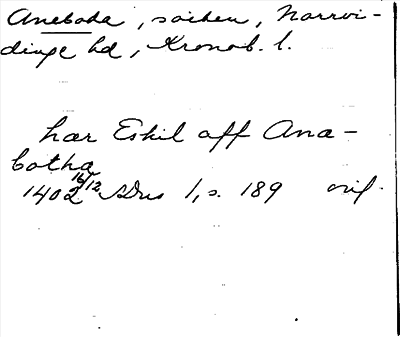 Aneboda, socken, Norrvi-
dinge hd, Kronob. l.
har Eskil aff Ana-
botha
1402 16/12 SDns 1, s. 189 orig.